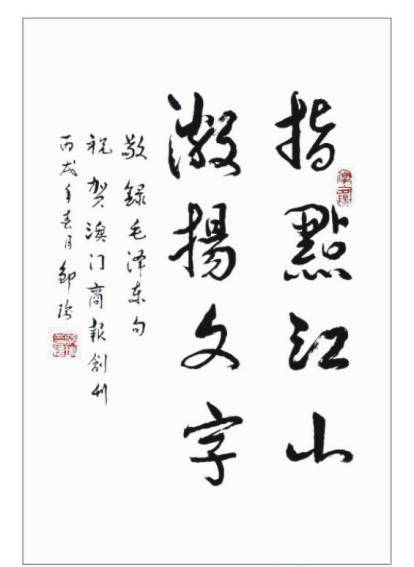 指點江山
激揚文字
敬録毛泽东句
祝贺澳门商報創刊
丙戌年春月邹